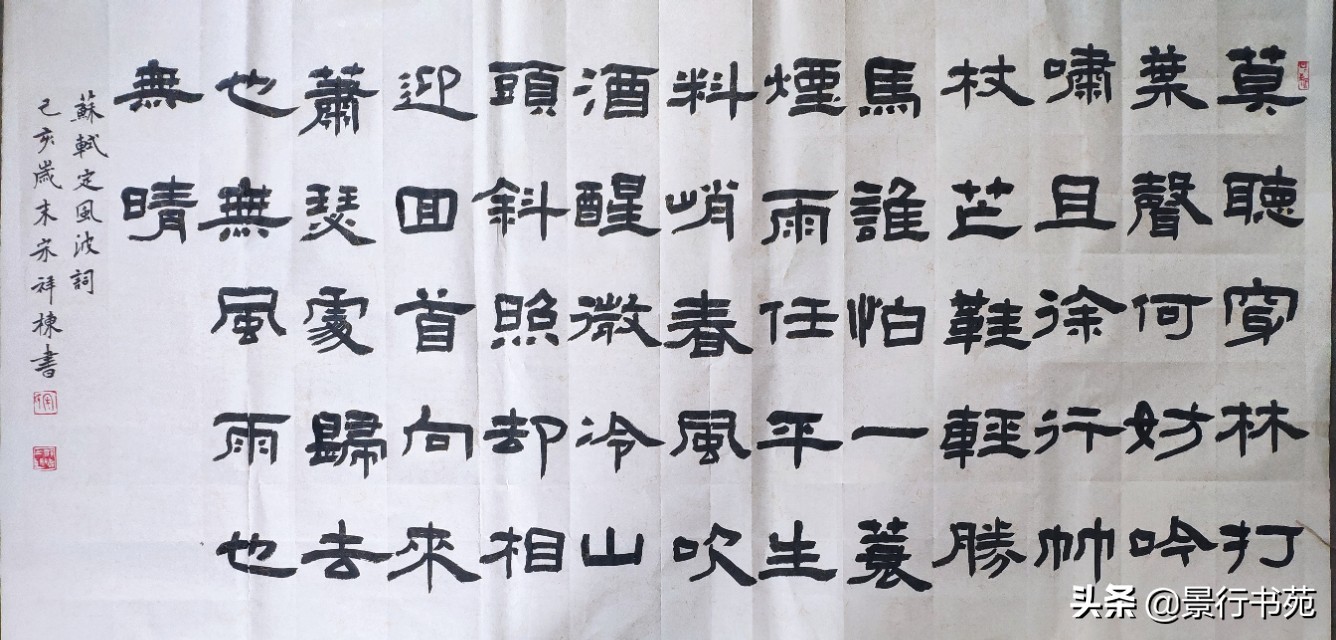 莫聽穿林打
葉聲何妨吟
嘯且徐行竹
杖芒鞋輕勝
馬誰怕一蓑
煙雨任平生
料峭春風吹
酒醒微冷山
頭斜照却相
迎回首向來
蕭瑟處歸去
也無風雨也
無晴
蘇軾定風波詞
己亥歲末宋祥棟書
头条 @景行书苑